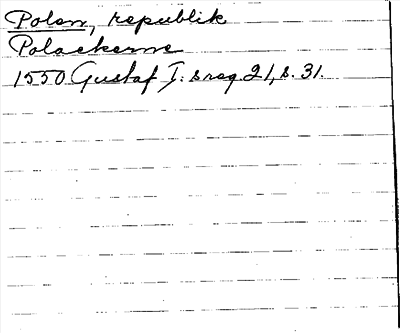 Polen, republik
Polackerne
1550 Gustaf I:s reg 21, s. 31.